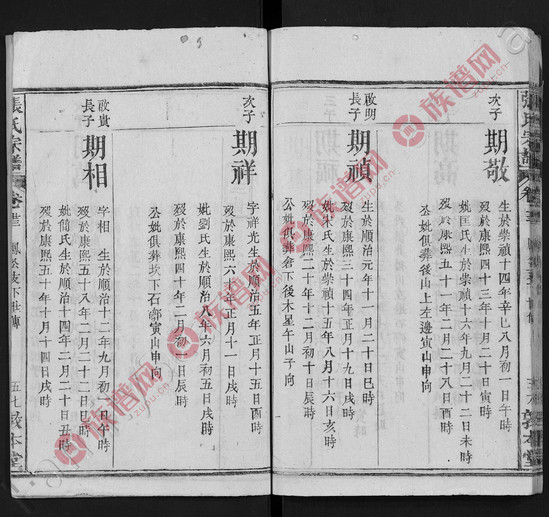 次子
期敬
生於崇禎十四年辛巳八月初一日午時
歿於康熙四十三年十月二十日寅時
妣匡氏生於崇禎十六年九月二十二日未時
歿於康熙五十一年二月二十八日酉時
公妣俱葬後山上左邊寅山申向
啟明
長子
期禎
生於順治元年十一月二十日巳時
歿於康熙三十四年二月初八日戌時
妣宋氏生於崇禎十五年八月十六日亥時
歿於康熙二十年十二月初二日辰時
公妣俱葬倉下後木星午山子向
次子
期祥
字祥光生於順治五年正月十五日酉時
歿於康熙六十年正月十一日戌時
妣劉氏生於順治八年六月初五日戌時
歿於康熙四十年二月初十日辰時
公妣俱葬坎下石𡑞寅山申向
啟貴
長子
期相
字相 生於順治十二年九月初一日午時
歿於康熙五十八年二月二十二日巳時
妣簡氏生於順治十四年二月二十日丑時
歿於康熙五十年十月十四日戌時
張氏宗譜
卷三
鳳公支下世傳
五七
敦本堂
族谱网